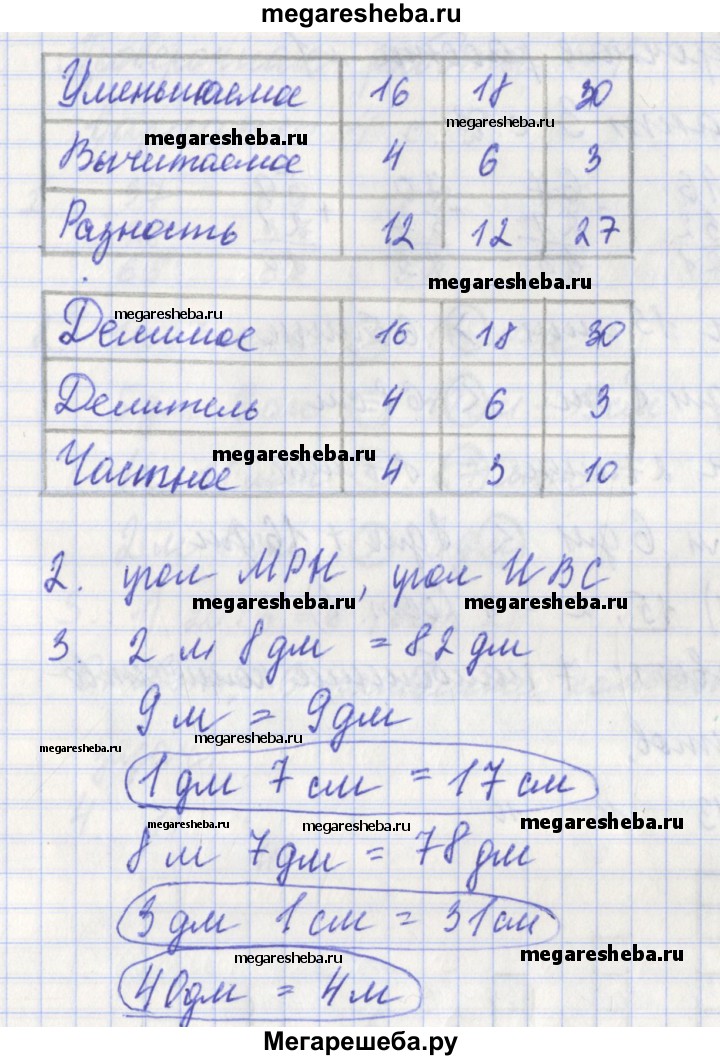 megaresheba.ru
Уменьшаемое 16 18 30
megaresheba.ru megaresheba.ru
Вычитаемое 4 6 3
Разность 12 12 27
megaresheba.ru
megaresheba.ru
Делимое 16 18 30
Делитель 4 6 3
megaresheba.ru
Частное 4 3 10
2. угол МРН, угол НВС
megaresheba.ru megaresheba.ru
3. 2 м 8 дм = 82 дм
9 м = 9 дм
megaresheba.ru megaresheba.ru
1 дм 7 см = 17 см
megaresheba.ru megaresheba.ru megaresheba.ru
8 м 7 дм = 78 дм
3 дм 1 см = 31 см
megaresheba.ru megaresheba.ru
40 дм = 4 м
megaresheba.ru
Мегарешеба.ру